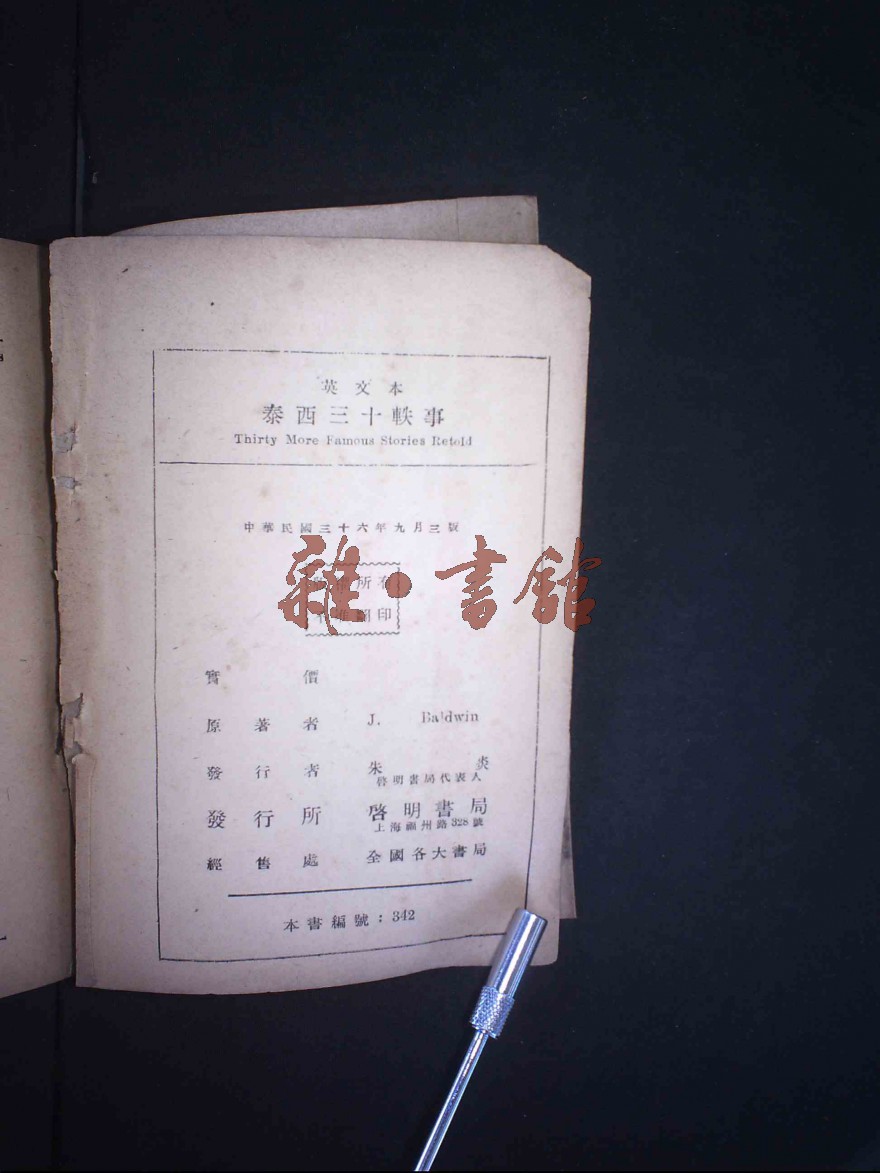 英文本
泰西三十軼事
Thirty More Famous Stories Retold
中華民國三十六年九月三版
所有
印
雜·書館
實價
原著者 J. Baldwin
發行者 朱炎
啓明書局代表人
發行所 啓明書局
上海福州路328號
經售處 全國各大書局
本書編號：342